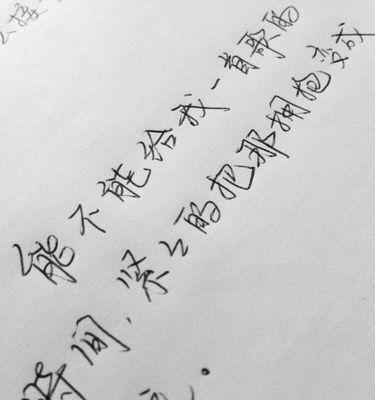 能不能给我一首歌的
时间，紧々的把那拥抱变成
。